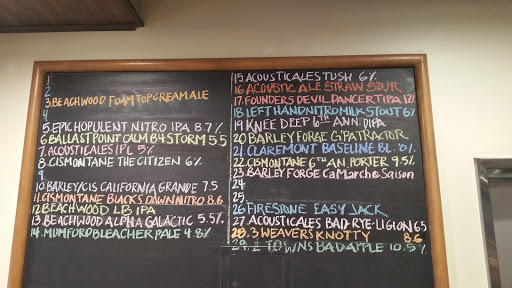 1.
2
3. BEACHWOOD FOAM TOP CREAM ALE
4
5. EPIC HOPULENT NITRO IPA 8.7%
6 BALLAST POINT CALM B4 STORM 5.5
7. ACOUSTIC ALES IPL 5%
8. CISMONTANE THE CITIZEN 6%
9.
10. BARLEY/CIS CALIFORNIA GRANDE 7.5
11. CISMONTANE BLACKS DAWN NITRO 8.6
12 BEACHWOOD LB IPA
13 BEACHWOOD ALPHA GALACTIC 5.5%
14. MUMFORD BLEACHER PALE 4.8%
15 ACOUSTIC ALES TUSH 6%
16 ACOUSTIC ALE STRAW SOUR
17. FOUNDERS DEVIL DANCER TIPA 12%
18 LEFT HAND NITRO MILK STOUT 6%
19 KNEE DEEP 6TH ANN. DIPA
20 BARLEY FORGE G'PATRACTOR
21. CLAREMONT BASELINE BL. 8%
22. CISMONTANE 6TH AN. PORTER 9.5%
23 BARLEY FORGE CaMarche Saison
24
25.
26 FIRESTONE EASY JACK
27 ACOUSTIC ALES BAD-RYE-LIGION 65
28. 3 WEAVERS KNOTTY 8.6
29. 2 TOWNS BAD APPLE 10.5%